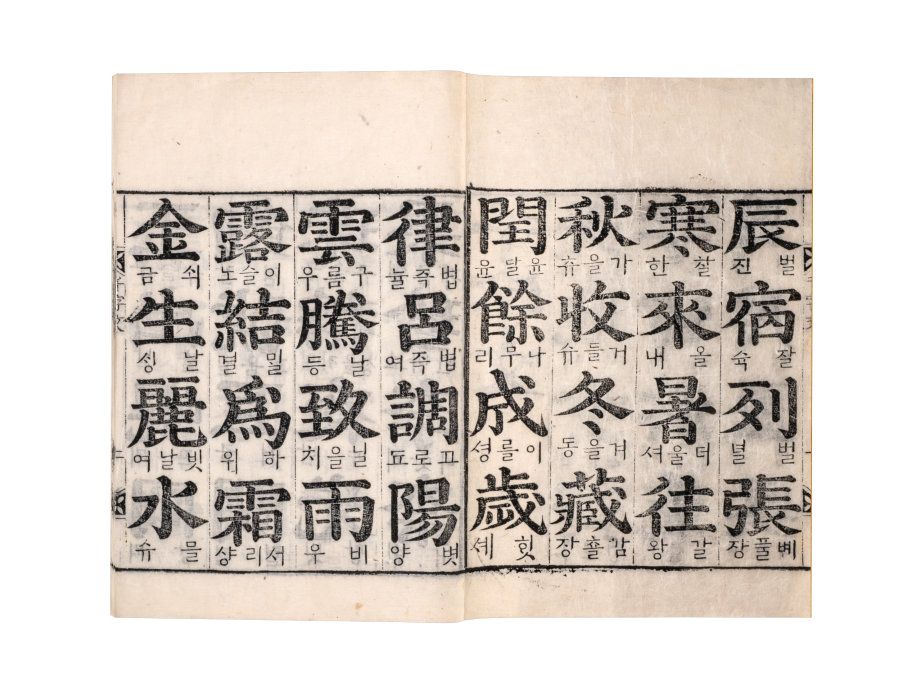 辰 별 진 宿 잘 슉 列 벌 녈 張 볘풀 장
寒 찰 한 來 올 내 暑 더울 셔 往 갈 왕
秋 가을 츄 收 거들 슈 冬 거을 동 藏 감촐 장
閏 윤달 윤 餘 나무 리 成 이를 셩 歲 힛 셰
律 법즉 뉼 呂 법즉 여 調 고로 됴 陽 볏 양
雲 구름 우 騰 날 등 致 닐을 치 雨 비 우
露 이슬 노 結 밀 결 爲 하 위 霜 서리 상
金 쇠 금 生 날 싱 麗 빗날 여 水 믈 슈